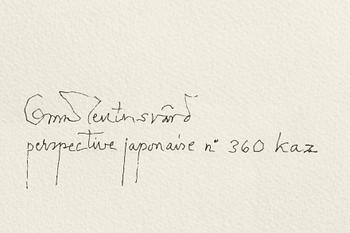 Oscar Reutersvärd
perspective japonaise n° 360 kaz